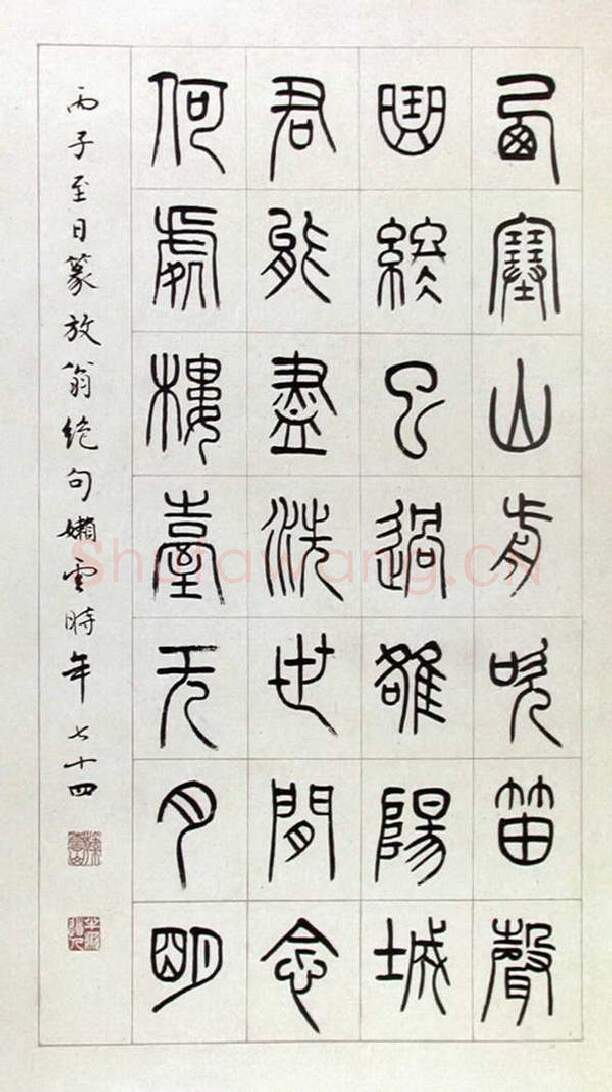 西塞山前吹笛聲
曲終已過雒陽城
君能盡洗世閒念
何處樓臺无月明
丙子至日篆放翁絕句嬾雲時年七十四
Shufawang.CN